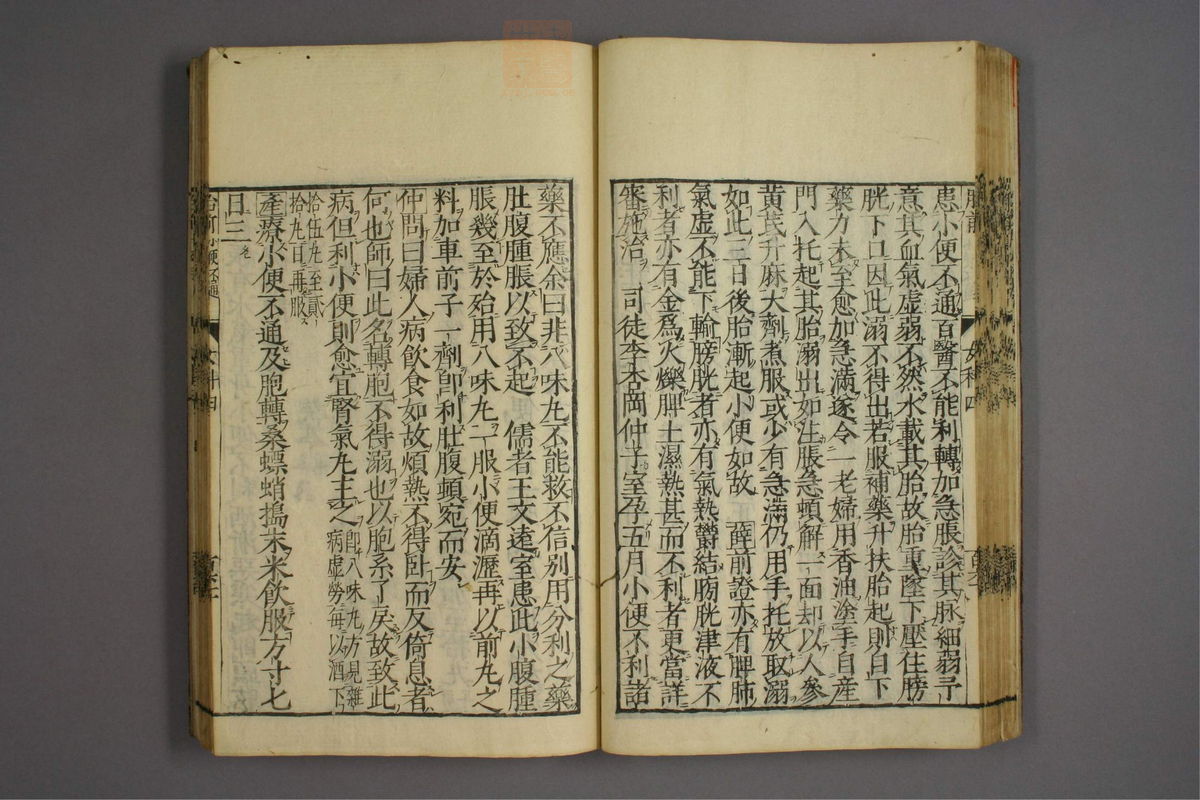 患小便不通百醫不能利轉加急脹診其脉細弱予
意其血氣虛弱不然水載其胎故胎重墜下壓住膀
胱下口因此溺不得出若服補藥升扶胎起則自下
藥力未至愈加急滿遂令一老婦用香油塗手自産
門入托起其胎溺出如注脹急頓解一面却以人參
黄芪升麻大劑煮服或少有急滿仍用手托放取溺
如此三日後胎漸起小便如故　薛前證亦有脾肺
氣虛不能下輸膀胱者亦有氣熱鬱結膀胱津液不
利者亦有金爲火爍脾土濕熱甚而不利者更當詳
審施治　司徒李杏岡仲子室孕五月小便不利諸
藥不應余曰非八味丸不能救不信别用分利之藥
肚腹腫脹以致不起　儒者王文遠室患此小腹腫
脹幾至於殆用八味丸一服小便滴瀝再以前丸之
料加車前子一劑卽利肚腹頓宛而安
仲問曰婦人病飲食如故煩熱不得卧而反倚息者
何也師曰此名轉胞不得溺也以胞系了戾故致此
病但利小便則愈宜腎氣丸主之卽八味丸方見雜
病虛勞每以酒下
拾伍丸至貳
拾丸日再服
産療小便不通及胞轉桑螵蛸搗末米飲服方寸七
日三
女科四